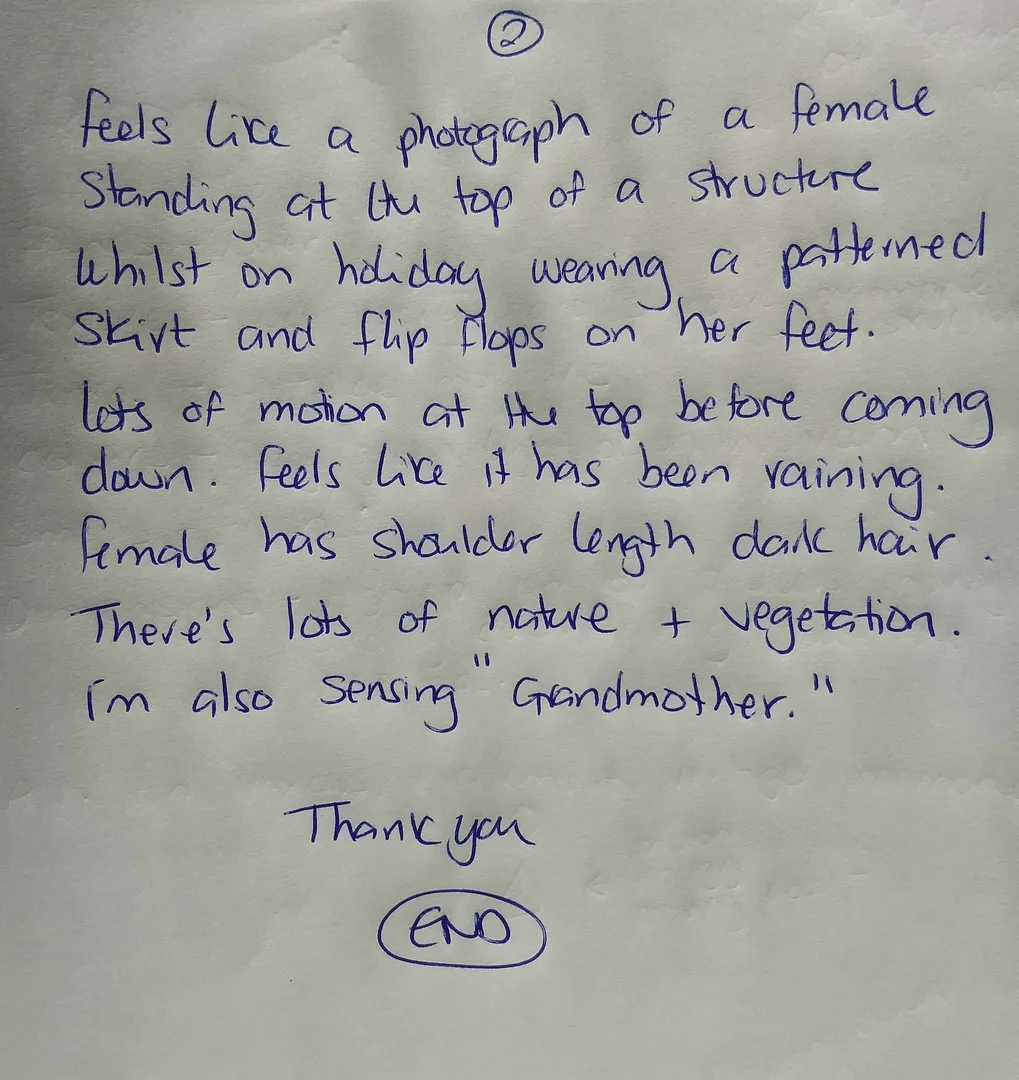 2
feels like a photograph of a female
Standing at the top of a structure
Whilst on holiday wearing a patterned
Skirt and flip flops on her feet.
lots of motion at the top before coming
down. feels like it has been raining.
female has shoulder length dark hair.
There's lots of nature + vegetation.
i'm also sensing "Grandmother."
Thank you
END